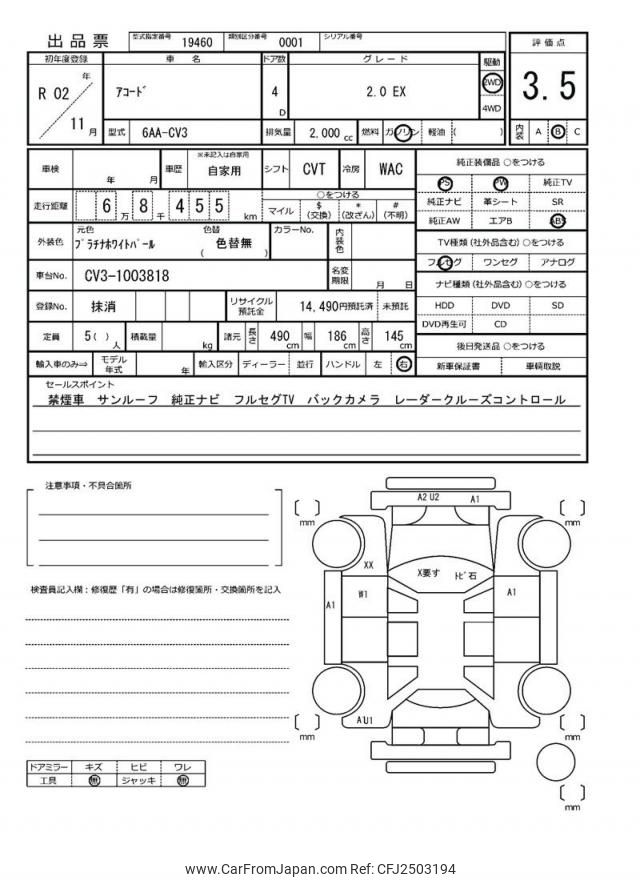 出品票 型式指定番号 19460 類別区分番号 0001 シリアル番号
評価点
3.5
内装 A B C
初年度登録 車名 ドア数 グレード 駆動
R 02 年 11 月 アコード 4 D 2.0 EX 2WD 4WD
型式 6AA-CV3 排気量 2,000 cc 燃料 ガソリン 軽油 ( )
車検 年 月 車歴 ※未記入は自家用 自家用 シフト CVT 冷房 WAC
走行距離 6 万 8 千 4 5 5 km ○をつける マイル $ (交換) * (改ざん) # (不明)
外装色 元色 プラチナホワイトパール 色替 色替無 ( ) カラーNo. 内装色
車台No. CV3-1003818 名変期限 月 日
登録No. 抹消 リサイクル預託金 14,490円預託済 未預託
定員 5 ( ) 人 積載量 kg 諸元 長さ 490 cm 幅 186 cm 高さ 145 cm
輸入車のみ⇒ モデル年式 年 輸入区分 ディーラー 並行 ハンドル 左 右
純正装備品 ○をつける
PS PW 純正TV
純正ナビ 革シート SR
純正AW エアB ABS
TV種類 (社外品含む) ○をつける
フルセグ ワンセグ アナログ
ナビ種類 (社外品含む) ○をつける
HDD DVD SD
DVD再生可 CD
後日発送品 ○をつける
新車保証書 車輌取説
セールスポイント
禁煙車 サンルーフ 純正ナビ フルセグTV バックカメラ レーダークルーズコントロール
注意事項・不具合箇所
検査員記入欄：修復歴「有」の場合は修復箇所・交換箇所を記入
A2 U2 A1
[ ] mm [ ] mm
XX X要す トビ石
W1 A1
A1
A1U1
[ ] mm [ ] mm
[ ] mm
ドアミラー キズ ヒビ ワレ
工具 無 ジャッキ 無
www.CarFromJapan.com Ref: CFJ2503194